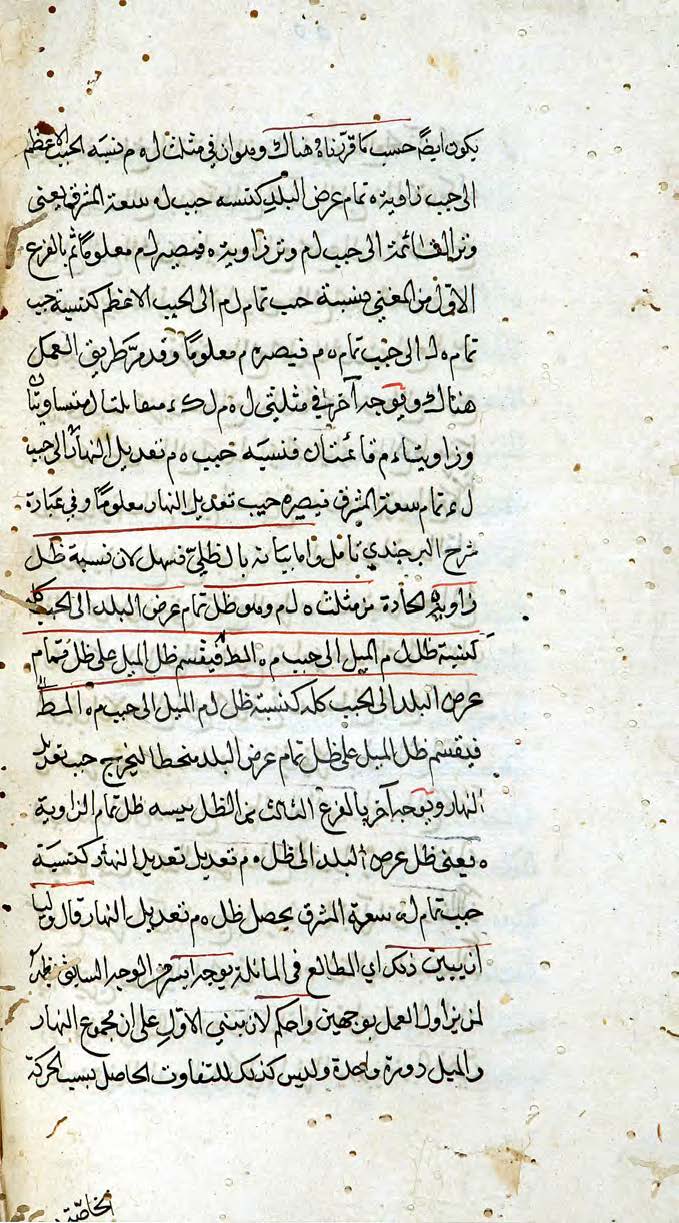 يكون ايضًا حسب ما قررناه هناك وهوان في مثلث ل ه م نسبة الجيب الاعظم
الى جيب زاوية ه تمام عرض البلد كنسبة جيب ل ه سعة المشرق يعني
وتر القائمة الى جيب ل م وتر زاوية ه فيصير ل م معلومًا ثم بالفرع
الاول من المغني نسبة جيب تمام ل م الى الجيب الاعظم كنسبة جيب
تمام ه ل الى جيب تمام ه م فيصير ه م معلومًا وقد مرّ طريق العمل
هناك وبوجه آخر في مثلثي ل ه م ل ك ء متقابلتا ل متساويتان
وزاويتا ء م قائمتان فنسبة جيب ه م تعديل النهار الى جيب
ل ء تمام سعة المشرق فيصير جيب تعديل النهار معلومًا وفي عبارة
شرح البرجندي تأمل واما بيانه بالظليّ فسهل لان نسبة ظل
زاوية ه الحادة من مثلث ه ل م وهو ظل تمام عرض البلد الى الجيب كله
كنسبة ظل ل م الميل الى جيب م ه المط فيقسم ظل الميل على ظل تمام
عرض البلد الى الجيب كله كنسبة ظل ل م الميل الى جيب م ه المط
فيقسم ظل الميل على ظل تمام عرض البلد منحطا ليخرج جيب تعديل
النهار وبوجه آخر بالفرع الثالث من الظل نسبة ظل تمام الزاوية
ه يعني ظل عرض البلد الى ظل ه م تعديل تعديل النهار كنسبة
جيب تمام ل ه سعة المشرق يحصل ظل ه م تعديل النهار قال ولنا
ان يبين ذلك اي المطالع في المائلة بوجه ايسر من الوجه السابق
لمن يزاول العمل بوجهين واحكم لان مبنى الاول على ان مجموع النهار
والميل دورة واحدة وليس كذلك للتفاوت الحاصل بسبب الحركة
الخاصة